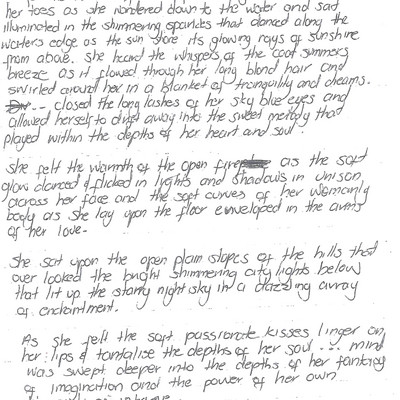 her toes as she wondered down to the water and sat
illuminated in the shimmering sparkles that danced along the
waters edge as the sun shone its glowing rays of sunshine
from above. She heard the whispers of the cool summers
breeze as it flowed through her long blond hair and
swirled around her in a blanket of tranquility and dreams.
... closed the long lashes of her sky blue eyes and
allowed herself to drift away into the sweet melody that
played within the depths of her heart and soul.
She felt the warmth of the open fire as the soft
glow danced & flicked in lights and shadows in unison,
across her face and the soft curves of her womanly
body as she lay upon the floor enveloped in the arms
of her love.
She sat upon the open plain slopes of the hills that
over looked the bright shimmering city lights below
that lit up the starry night sky in a dazzling array
of enchantment.
As she felt the soft passionate kisses linger on
her lips & tantalise the depths of her soul ... mind
was swept deeper into the depths of her fantasy
of imagination and the power of her own